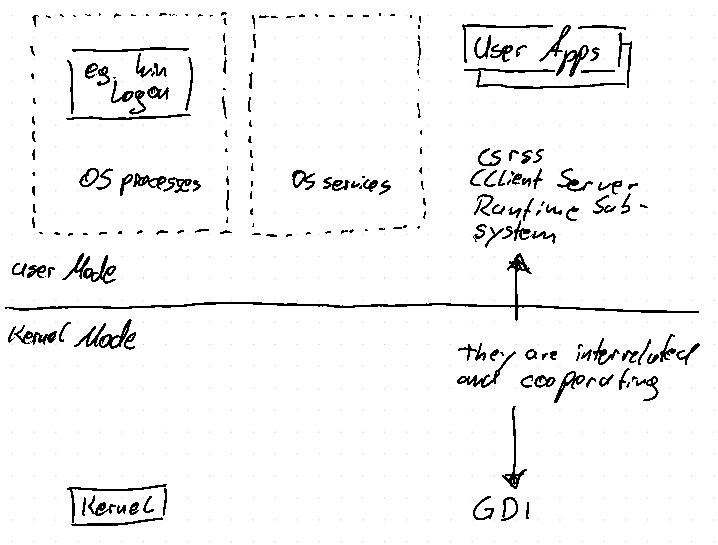 eg. Win
Logon
OS processes
OS services
User Apps
csrss
CClient Server
Runtime Sub-
system
User Mode
Kernel Mode
they are interrelated
and cooperating
Kernel
GDI